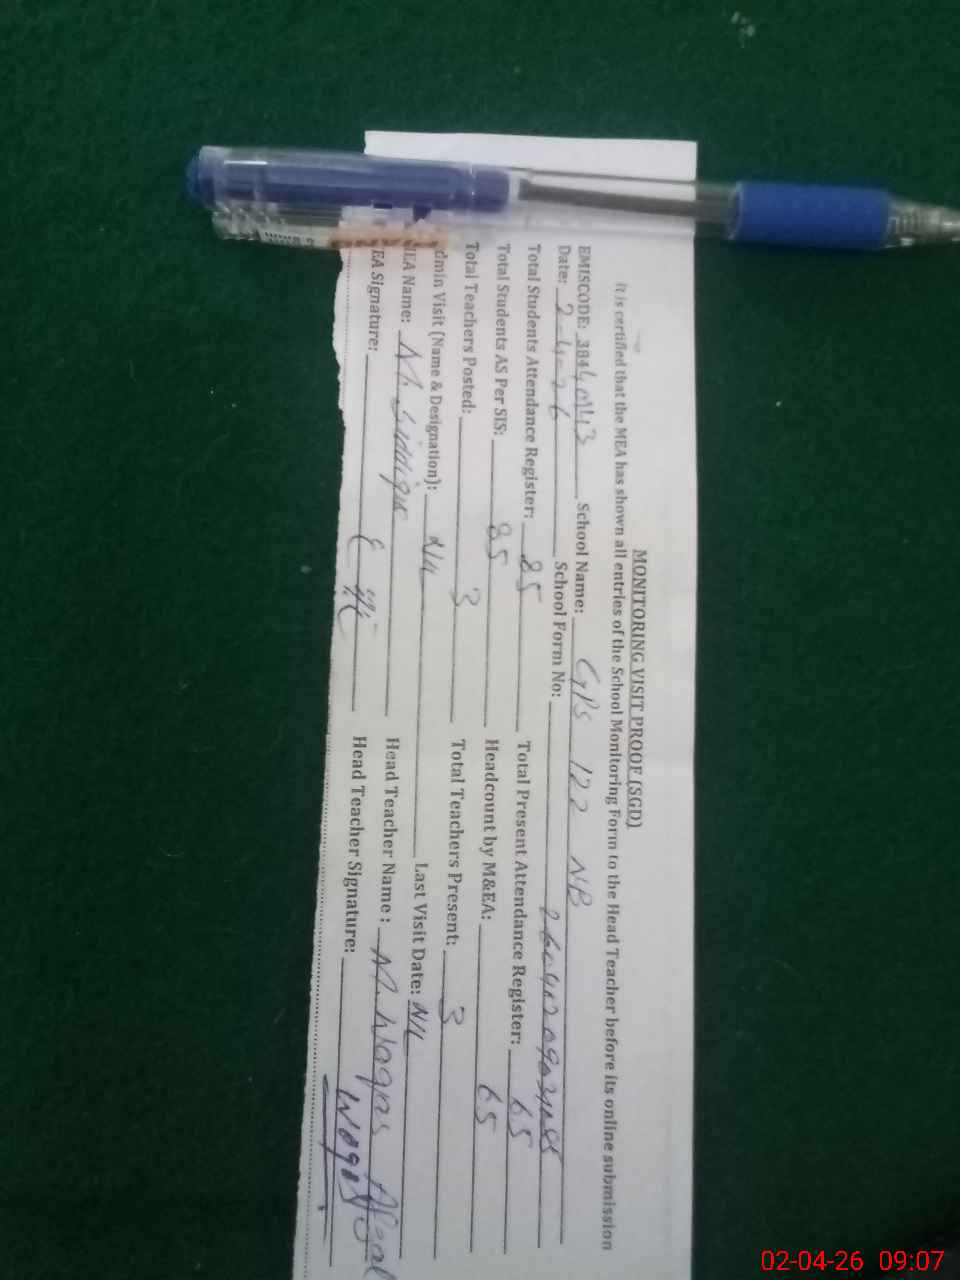 MONITORING VISIT PROOF (SGD)
It is certified that the MEA has shown all entries of the School Monitoring Form to the Head Teacher before its online submission
EMISCODE: 38440143 School Name: GPS 122 NB
Date: 2-4-26 School Form No:
Total Students Attendance Register: 85 Total Present Attendance Register: 65
Total Students AS Per SIS: 85 Headcount by M&EA: 65
Total Teachers Posted: 3 Total Teachers Present: 3
dmin Visit (Name & Designation): Nil Last Visit Date: NIL
MEA Name: M. Siddique Head Teacher Name : M. Waqas Afzal
EA Signature: Head Teacher Signature: Waqas
02-04-26 09:07